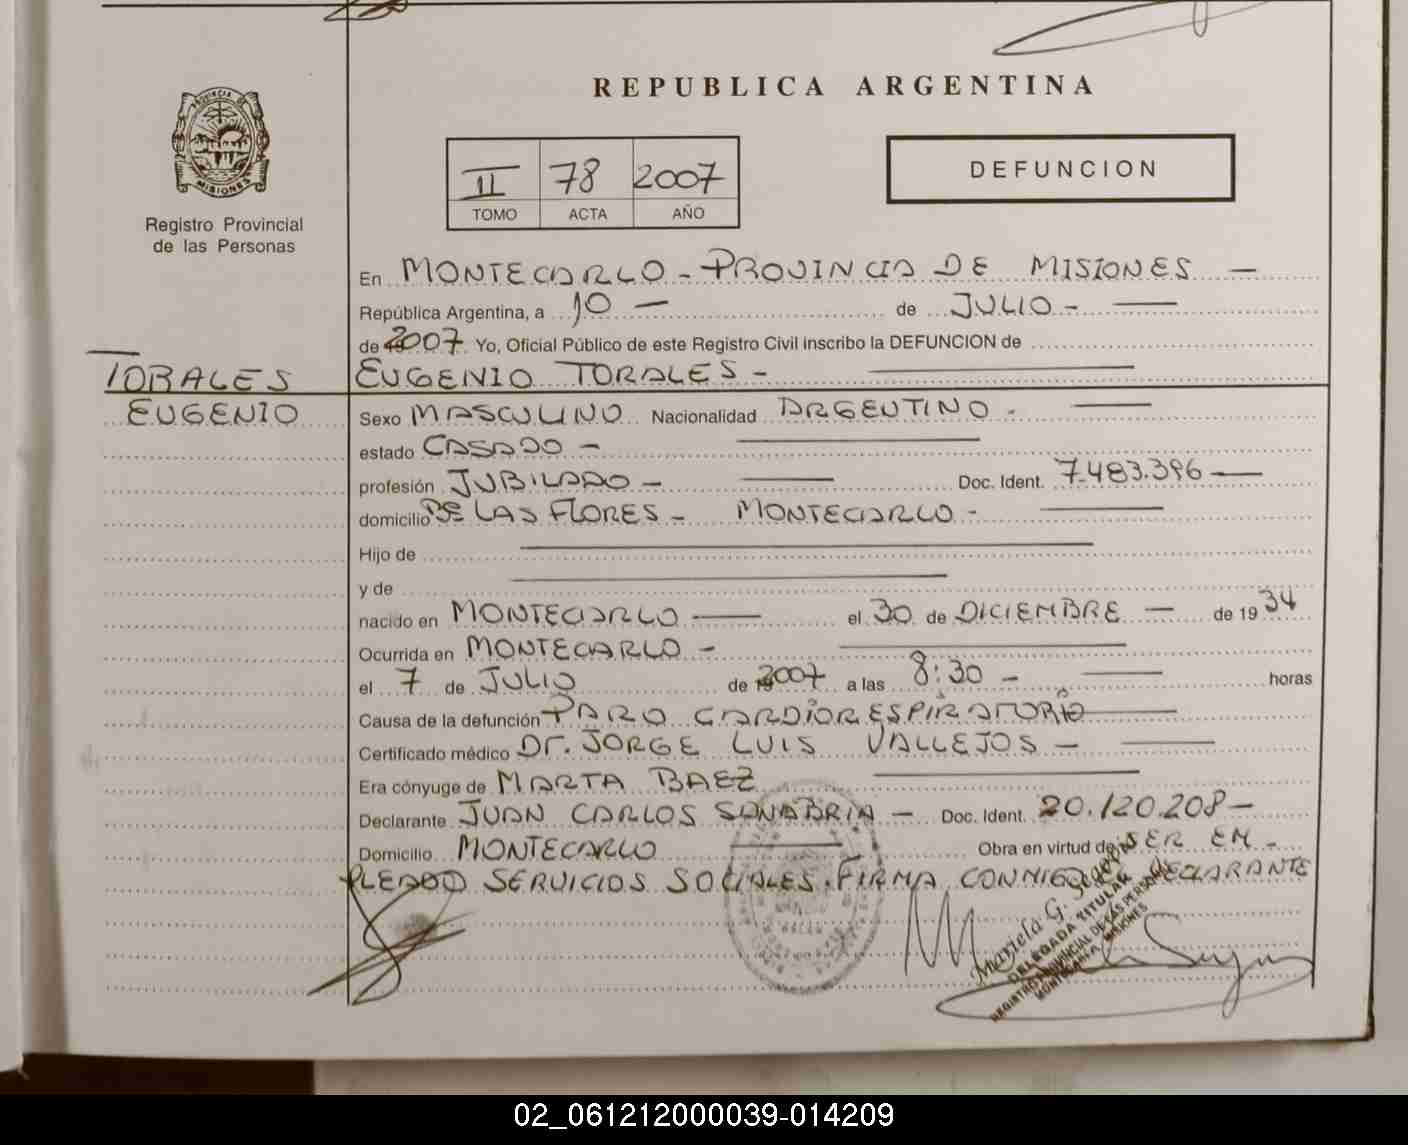 REPUBLICA ARGENTINA
PROVINCIA DE
MISIONES
Registro Provincial
de las Personas
II 78 2007
TOMO ACTA AÑO
DEFUNCION
En MONTECARLO - PROVINCIA DE MISIONES —
República Argentina, a 10 — de JULIO - —
de 2007 Yo, Oficial Público de este Registro Civil inscribo la DEFUNCION de
TORALES
EUGENIO
EUGENIO TORALES - —
Sexo MASCULINO Nacionalidad ARGENTINO - —
estado CASADO - —
profesión JUBILADO - — Doc. Ident. 7.483.396 —
domicilio Bº LAS FLORES - MONTECARLO - —
Hijo de —
y de —
nacido en MONTECARLO — el 30 de DICIEMBRE — de 1934
Ocurrida en MONTECARLO - —
el 7 de JULIO de 2007 a las 8:30 - — horas
Causa de la defunción PARO CARDIORESPIRATORIO —
Certificado médico Dr. JORGE LUIS VALLEJOS - —
Era cónyuge de MARTA BAEZ —
Declarante JUAN CARLOS SANABRIA - Doc. Ident. 20.120.208 -
Domicilio MONTECARLO — Obra en virtud de SER EM-
PLEADO SERVICIOS SOCIALES. FIRMA CONMIGO DECLARANTE
Mariela G.
DELEGADA TITULAR
REGISTRO PROVINCIAL DE LAS PERSONAS
MONTECARLO, MISIONES
02_061212000039-014209